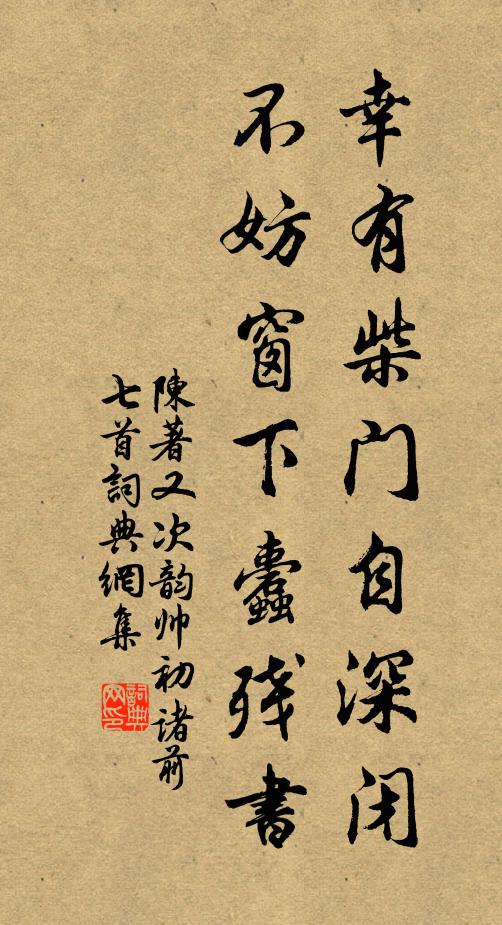 幸有柴门自深闭
不妨窗下蠹残書
陳著又次韵帅初诸前
七首詞典網集
詞典网印